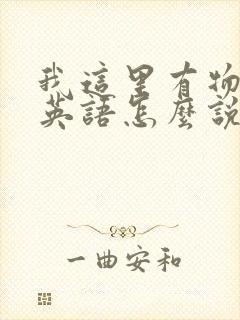 我這里有物
英語怎麼說
一曲安和